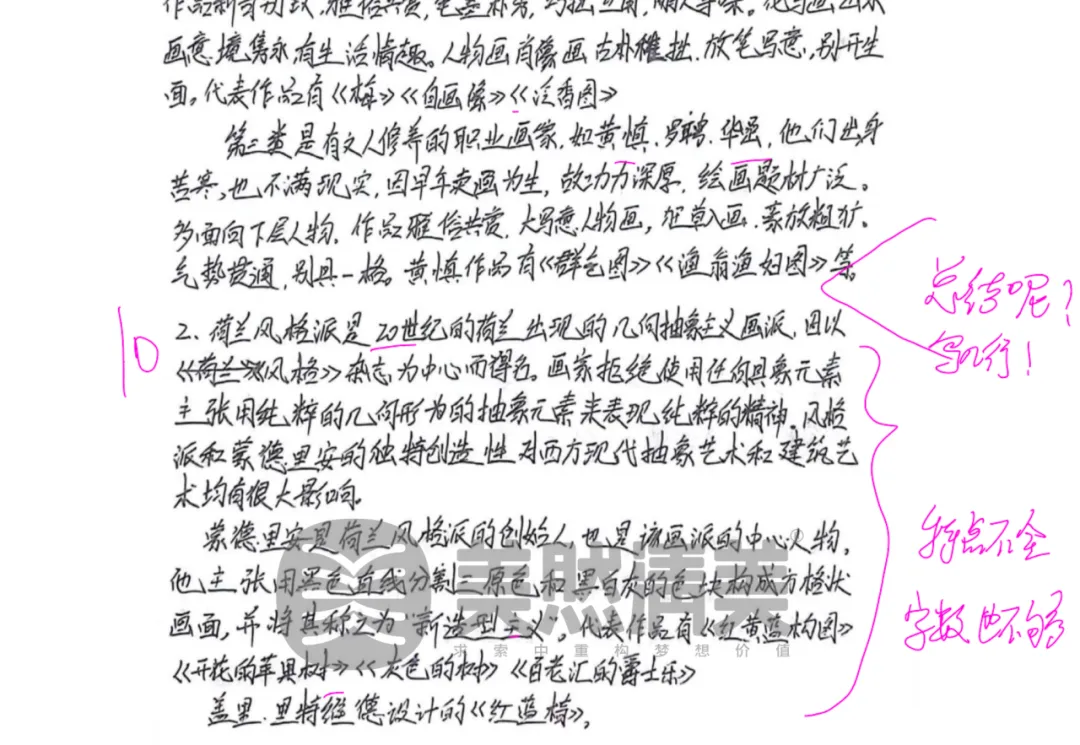 画意境隽永,有生活情趣。人物画肖像画古朴稚拙.放笔写意,别开生
面。代表作品有《梅》《自画像》《泛香图》
第三类是有文人修养的职业画家,如黄慎.罗聘.华嵒,他们出身
苦寒,也不满现实,因早年卖画为生,故功力深厚.绘画题材广泛。
多面向下层人物.作品雅俗共赏,大写意人物画,狂草入画.豪放粗犷.
气势贯通,别具一格。黄慎作品有《群乞图》《渔翁渔妇图》等。
总结呢?
写几行!
10
2、荷兰风格派是20世纪的荷兰出现的几何抽象主义画派,因以
《风格》杂志为中心而得名。画家拒绝使用任何具象元素
主张用纯粹的几何形为的抽象元素来表现纯粹的精神.风格
派和蒙德里安的独特创造性对西方现代抽象艺术和建筑艺
术均有很大影响.
特点不全
字数也不够
蒙德里安是荷兰风格派的创始人也是该画派的中心人物,
他主张用黑色直线分割三原色和黑白灰的色块构成方格状
画面,并将其称之为"新造型主义"。代表作品有《红黄蓝构图》
《开花的苹果树》《灰色的树》《百老汇的爵士乐》
盖里.里特维德设计的《红蓝椅》,
求索中重构梦想价值